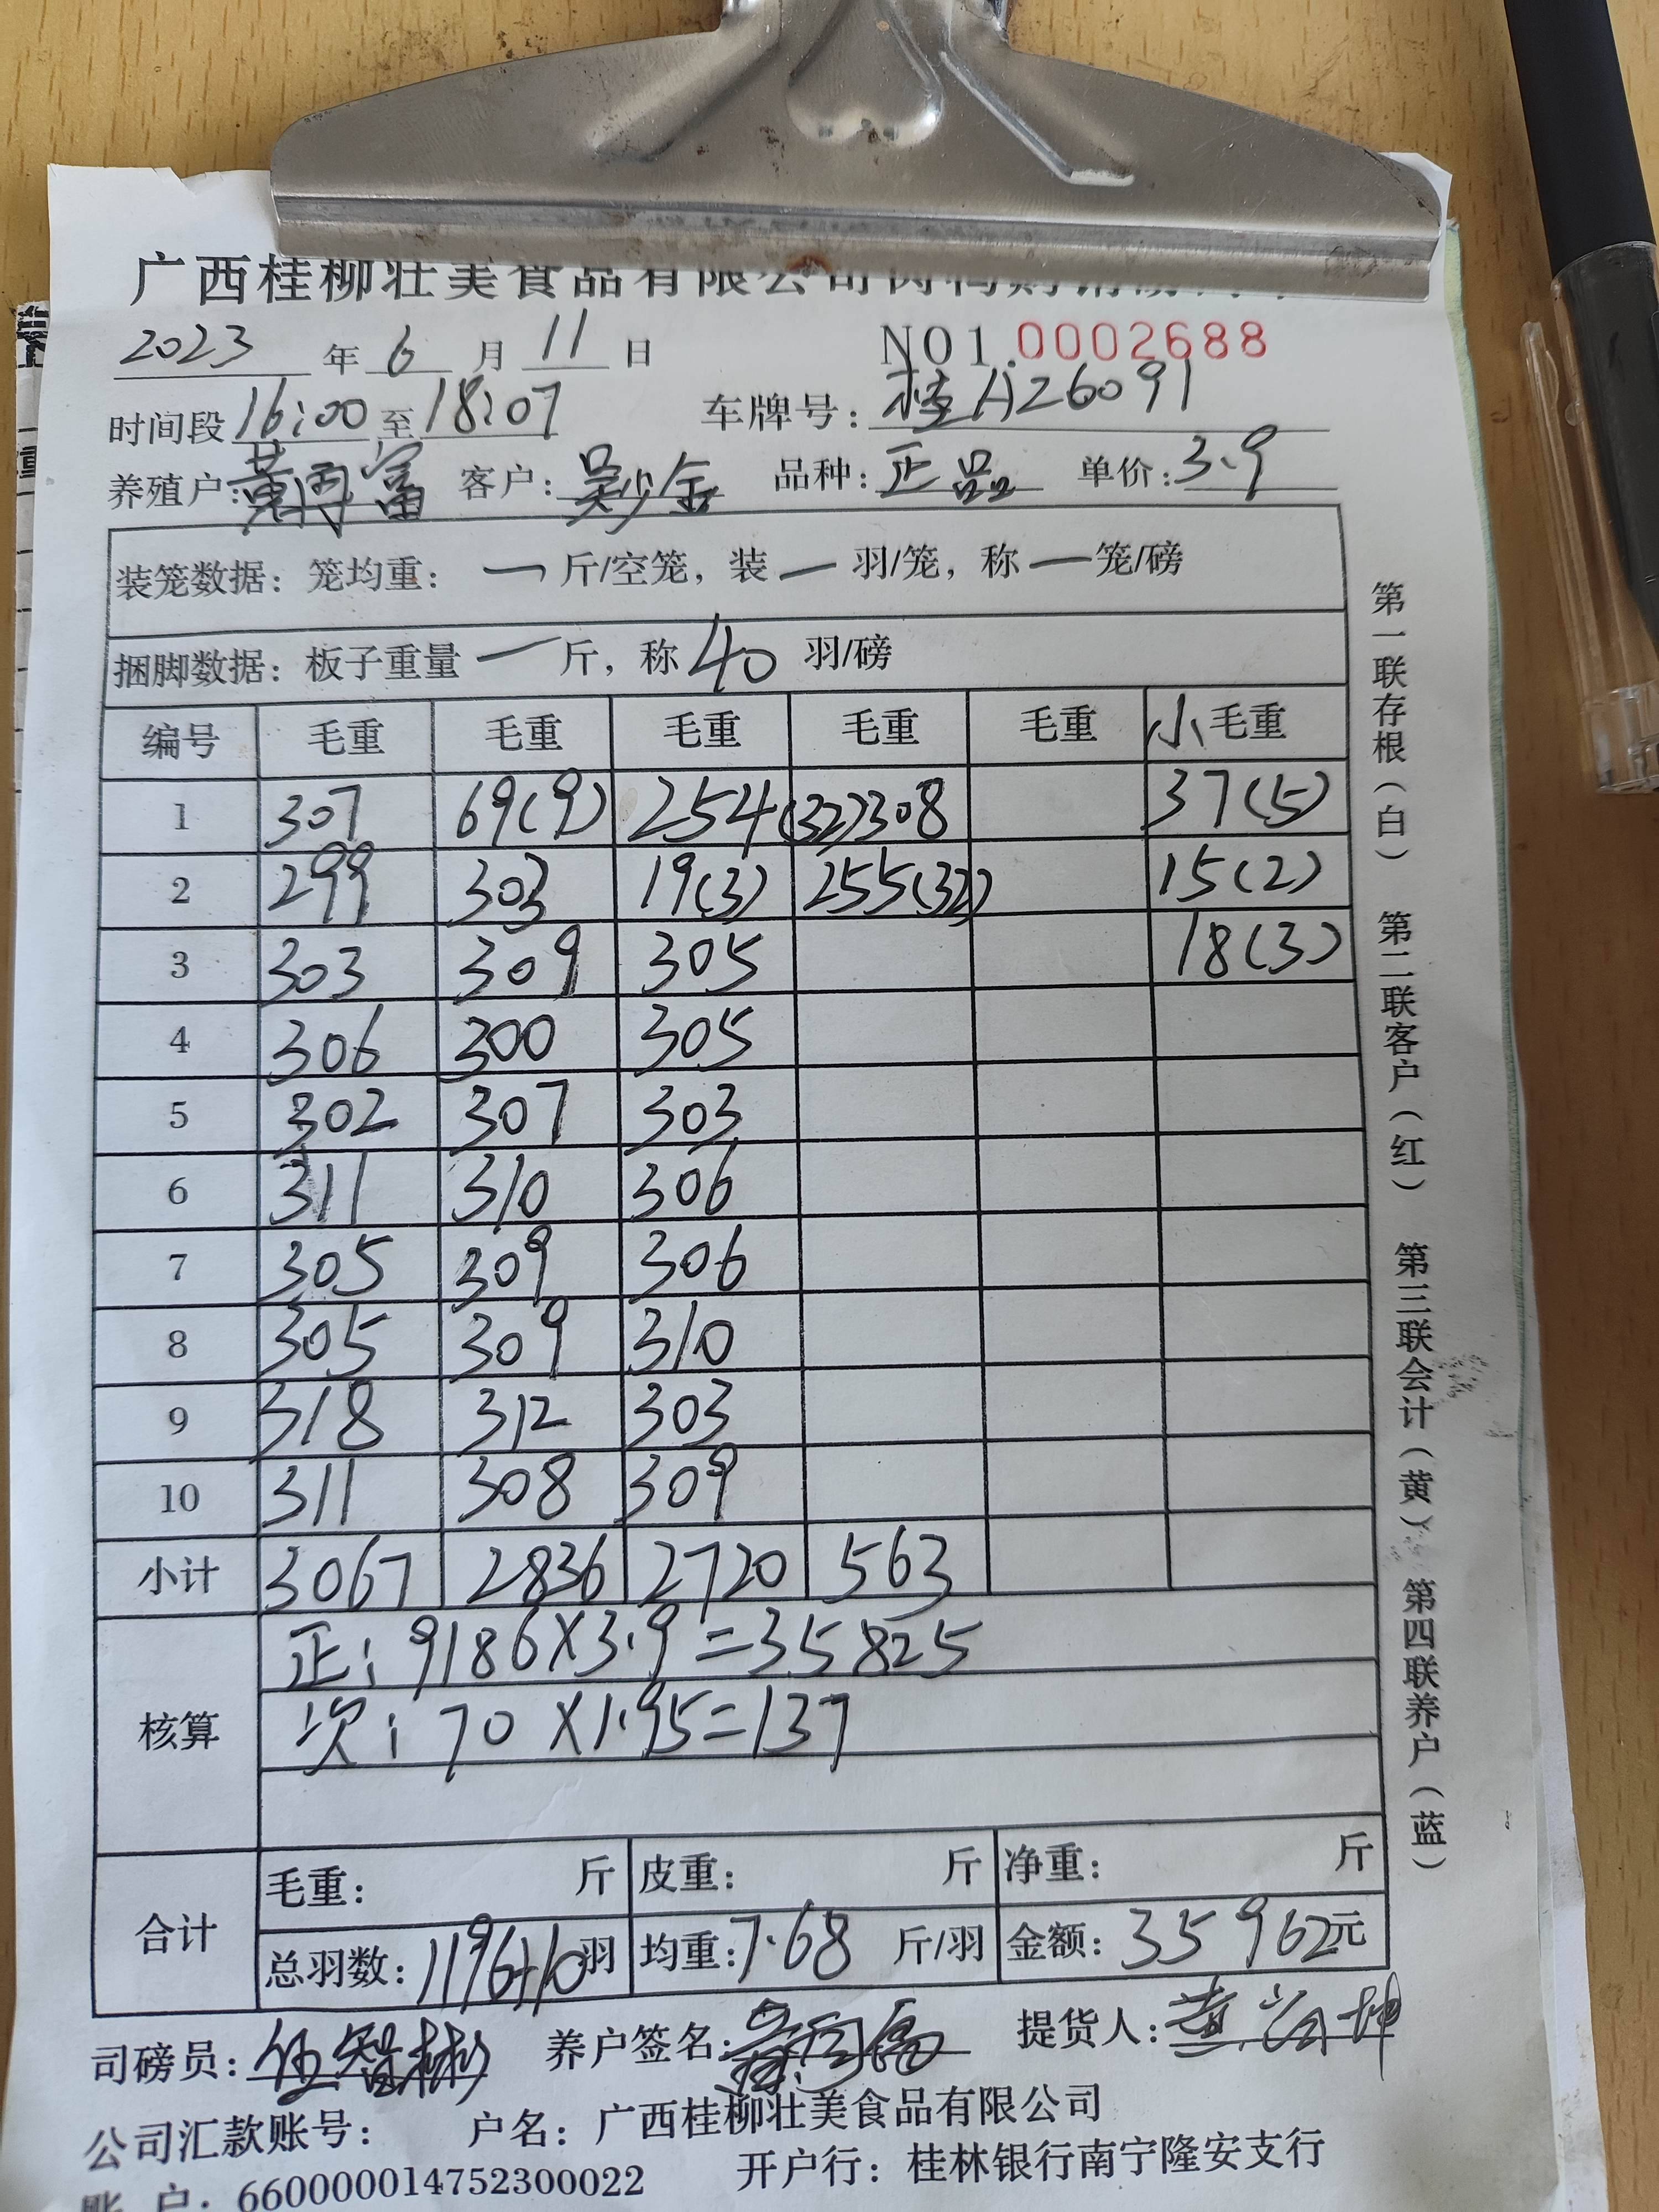 广西桂柳壮美食品有限公司肉鸭购销
2023年6月11日 NO1.0002688
时间段16:00至18:07 车牌号:桂A26091
养殖户: 黄再富 客户:吴少金 品种:正品 单价:3.9
装笼数据:笼均重: 一 斤/空笼,装 一 羽/笼,称 一 笼/磅
捆脚数据:板子重量 一 斤,称 40 羽/磅
编号 毛重 毛重 毛重 毛重 毛重 小毛重
1 307 69(9) 254(32) 308 37(5)
2 299 303 19(3) 255(32) 15(2)
3 303 309 305 18(3)
4 306 300 305
5 302 307 303
6 311 310 306
7 305 309 306
8 305 309 310
9 318 312 303
10 311 308 309
小计 3067 2836 2720 563
核算
正:9186X3.9=35825
次:70X1.95=137
合计
毛重: 斤 皮重: 斤 净重: 斤
总羽数:1196+10羽 均重:7.68 斤/羽 金额:35962元
司磅员:伍智彬 养户签名: 提货人:
公司汇款账号: 户名:广西桂柳壮美食品有限公司
账 户:660000014752300022 开户行:桂林银行南宁隆安支行
第一联存根(白) 第二联客户(红) 第三联会计(黄) 第四联养户(蓝)